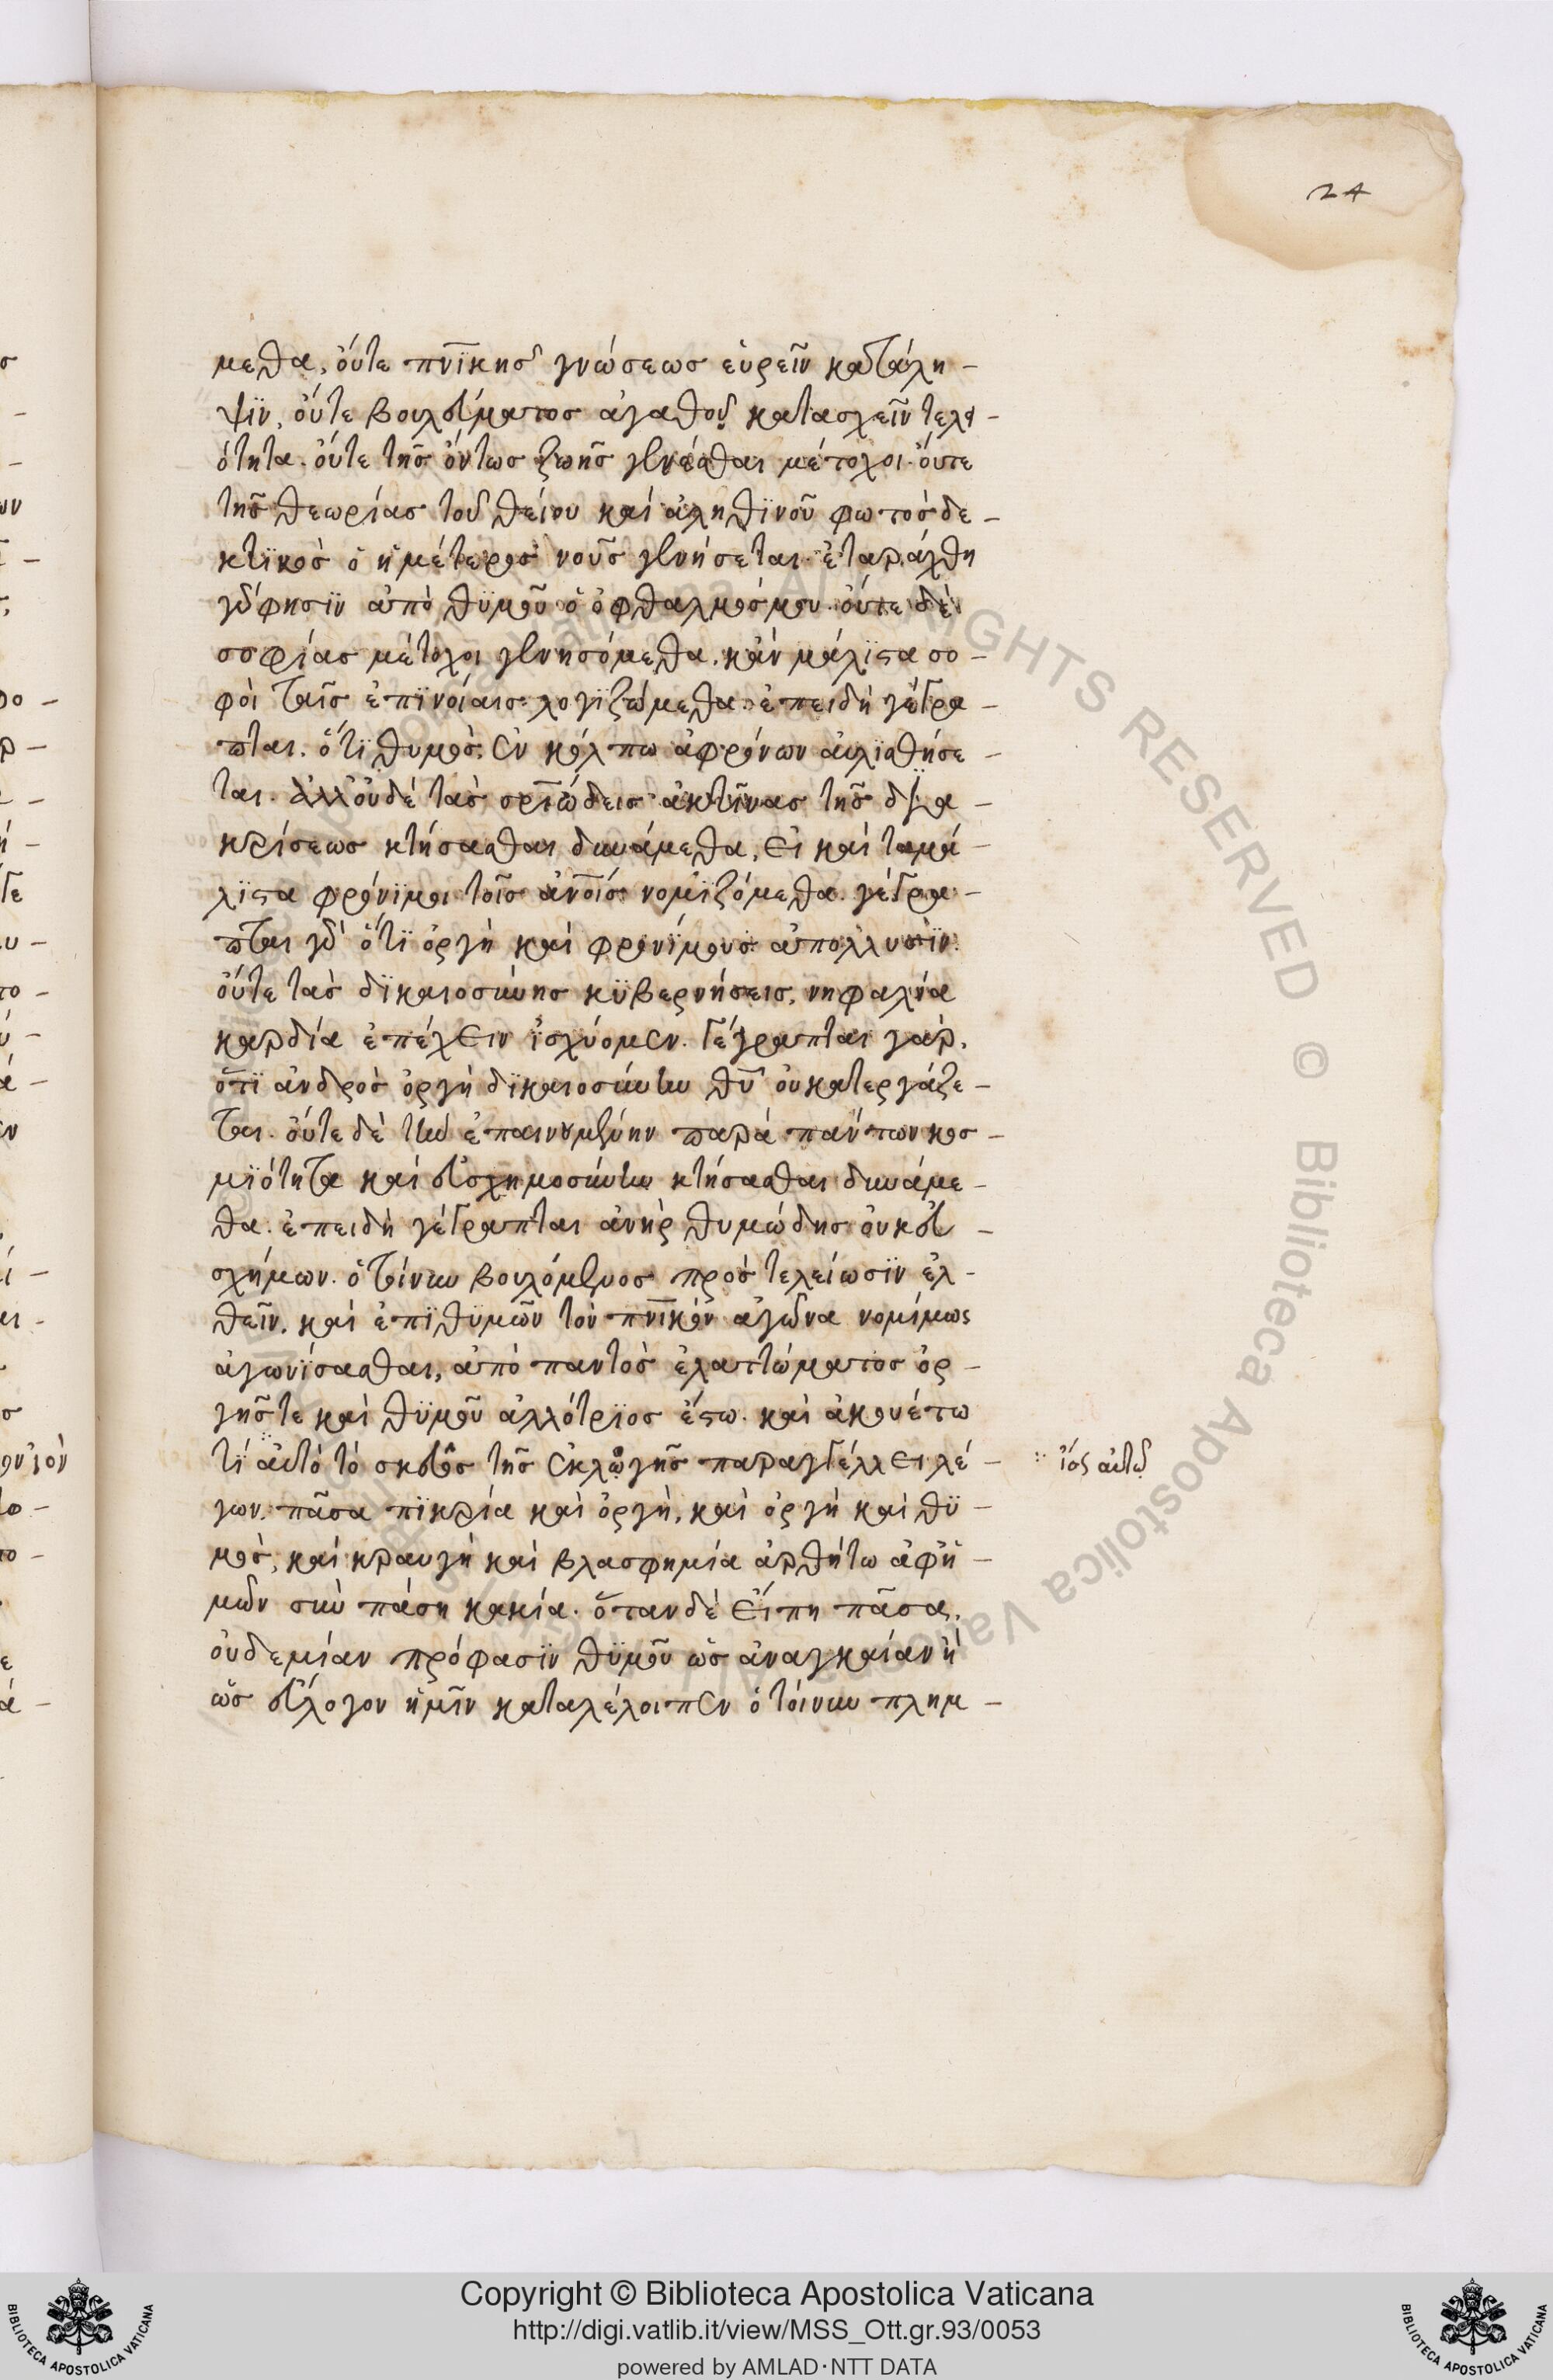 24
μεθα, ὄυτε πνϊκησ γνώσεωσ εὑρεῖν κατάλη-
ψϊν, ὄυτε βουλεύματοσ ἀγαθοῦ κατασχεῖν τελει-
ότητα. ὄυτε τῆσ ὄντωσ ζωῆσ γενέσθαι μέτοχοι. ὄυτε
τῆσ θεωρίασ τοῦ θείου καὶ ἀληθϊνοῦ φωτὸσ δε-
κτϊκὸσ ὁ ἡμέτεροσ νοῦσ γενήσεται. ἐταράχθη
γάρ φησϊν ἀπὸ θϋμοῦ ὁ ὀφθαλμόσ μου. ὄυτε δὲ
σοφίασ μέτοχοι γενησόμεθα. κἂν μάλϊστα σο-
φοὶ ταῖσ ἐπϊνοίαισ λογϊζώμεθα. ἐπειδὴ γέγρα-
πται. ὅτϊ θυμὸσ ἐν κόλπω ἀφρόνων ἀυλϊσθήσε-
ται. ἀλλ' ὀυδὲ τὰσ σρϊώδεισ ἀκτῖνασ τῆσ δϊα-
κρίσεωσ κτήσασθαι δυνάμεθα, εἰ καὶ ταμά-
λϊστα φρόνϊμοι τοῖσ ἀνοισ νομϊζόμεθα. γέγρα-
πται γὰρ ὅτϊ ὀργὴ καὶ φρονίμουσ ἀπολλυσϊν.
ὄυτε τὰσ δϊκαιοσύνησ κϋβερνήσεισ, νηφαλέα
καρδία ἐπέχειν ἰσχύομεν. Γέγραπται γὰρ,
ὅτϊ ἀνδρὸσ ὀργὴ δϊκαιοσύνην θυ ὀυκατεργάζε-
ται. ὄυτε δὲ τὴν ἐπαινουμένην παρὰ πάντων κοσ-
μϊότητα καὶ εὐσχημοσύνην κτήσασθαι δυνάμε-
θα. ἐπειδὴ γέγραπται ἀνὴρ θυμώδησ ὀυκ εὐ-
σχήμων. ὁ τοίνυν βουλόμενοσ πρὸσ τελείωσϊν ἐλ-
θεῖν, καὶ ἐπϊθϋμῶν τὸν πνϊκὸν ἀγῶνα νομίμως
ἀγωνίσασθαι, ἀπὸ παντὸσ ἐλαττώματοσ ὀρ-
γῆστε καὶ θϋμοῦ ἀλλότρϊοσ ἔστω. καὶ ἀκουέτω
τί ἀυτὸ τὸ σκεῦοσ τῆσ ἐκλογῆσ παραγγέλλει λέ-
γων. πᾶσα πϊκρία καὶ ὀργὴ, καὶ ὀργὴ καὶ θϋ-
μὸσ, καὶ κραυγὴ καὶ βλασφημία ἀρθήτω ἀφ' ἡ-
μῶν σὺν πάση κακία. ὅταν δὲ εἴπη πᾶσα,
ὀυδεμίαν πρόφασϊν θϋμοῦ ὡσ ἀναγκαίαν ἢ
ὡσ εὔλογον ἡμῖν καταλέλοιπεν ὁ τοίνυν πλημ-
Copyright © Biblioteca Apostolica Vaticana
http://digi.vatlib.it/view/MSS_Ott.gr.93/0053
powered by AMLAD·NTT DATA